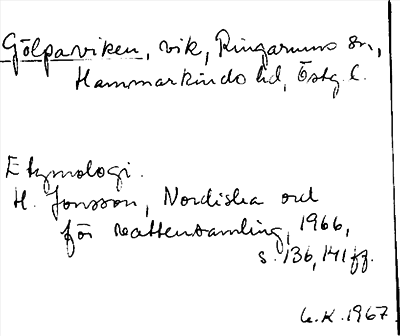 Gölpaviken, vik, Ringarums sn,
Hammarkinds hd, Östg. l.
Etymologi.
H. Jonsson, Nordiska ord
för vattensamling, 1966,
s. 136, 141 ff.
G.K. 1967